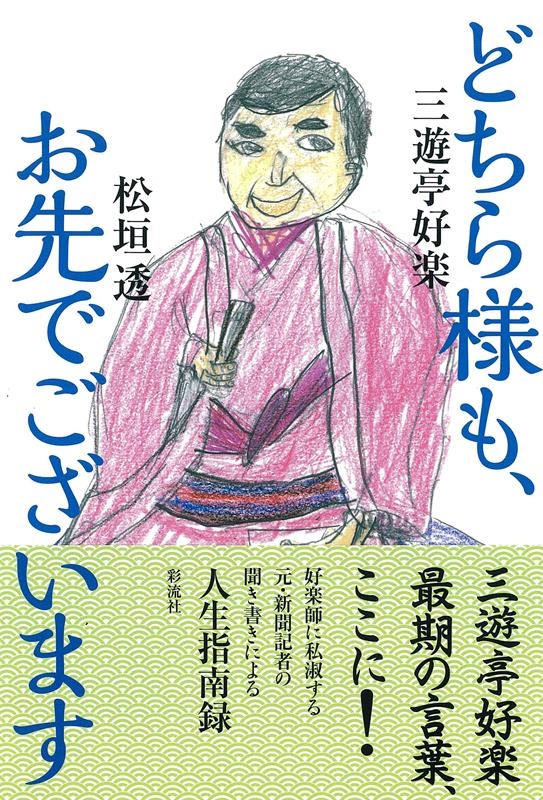 どちら様も、
三遊亭好楽
松垣透
お先でございます
三遊亭好楽
最期の言葉、
ここに!
好楽師に私淑する
元・新聞記者の
聞き書きによる
人生指南録
彩流社